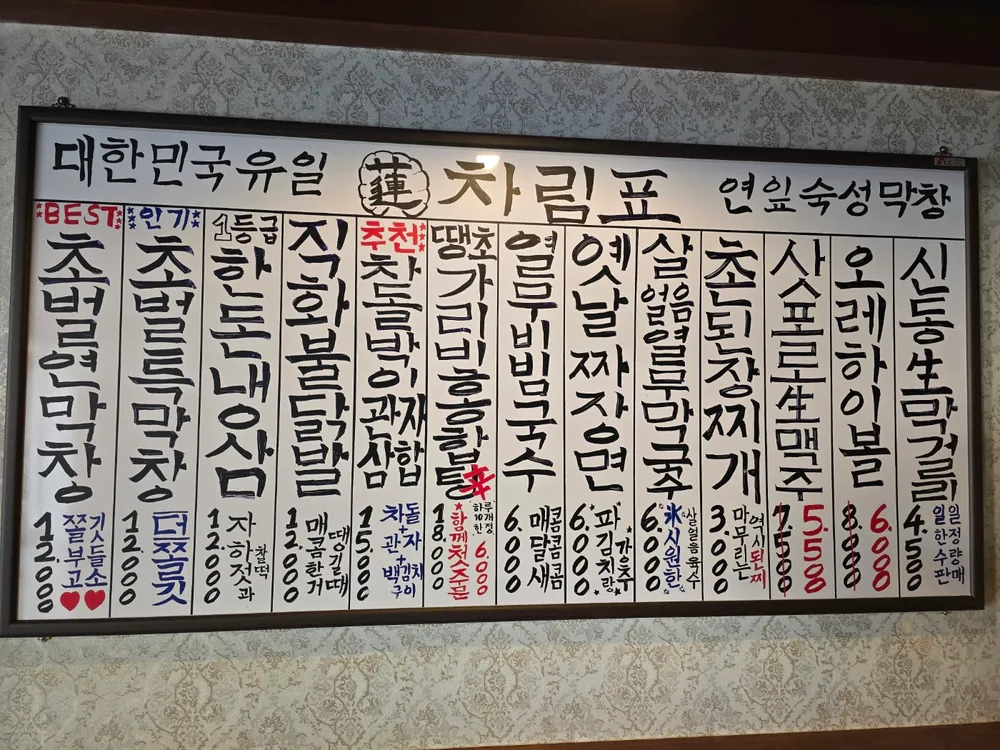 대한민국유일
蓮
차림표
연잎숙성막창
BEST
초벌연막창
12.000
쫄깃
부들
고소
인기
초벌특막창
12.000
더쫄깃
1등급
한돈냉삼
12.000
자하젓과
찰떡
직화불닭발
12.000
매콤한거
땡길때
추천
차돌박이관자삼합
15.000
차돌+관자+백김치
구이
땡초가리비홍합탕
辛
18.000
함께첫주문
하루10개한정
6.000
열무비빔국수
6.000
매콤달콤새콤
옛날짜장면
6.000
파김치랑
살얼음열무막국수
6.000
氷시원한
살얼음육수
촌된장찌개
3.000
마무리는
역시된찌
삿포로生맥주
7.500
5.500
오레하이볼
8.000
6.000
신동生막걸리
4.500
일일한정수량판매